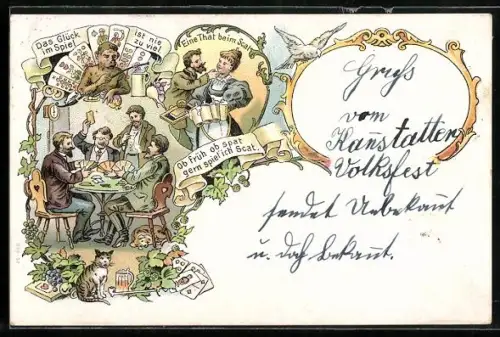 Das Glück
im Spiel
ist nie
zu viel
Eine That beim Scat.
Ob früh ob spät
gern spiel' ich Scat.
Gruß
vom
Kannstatter
Volksfest
sendet Unbekannt
u. doch bekannt.